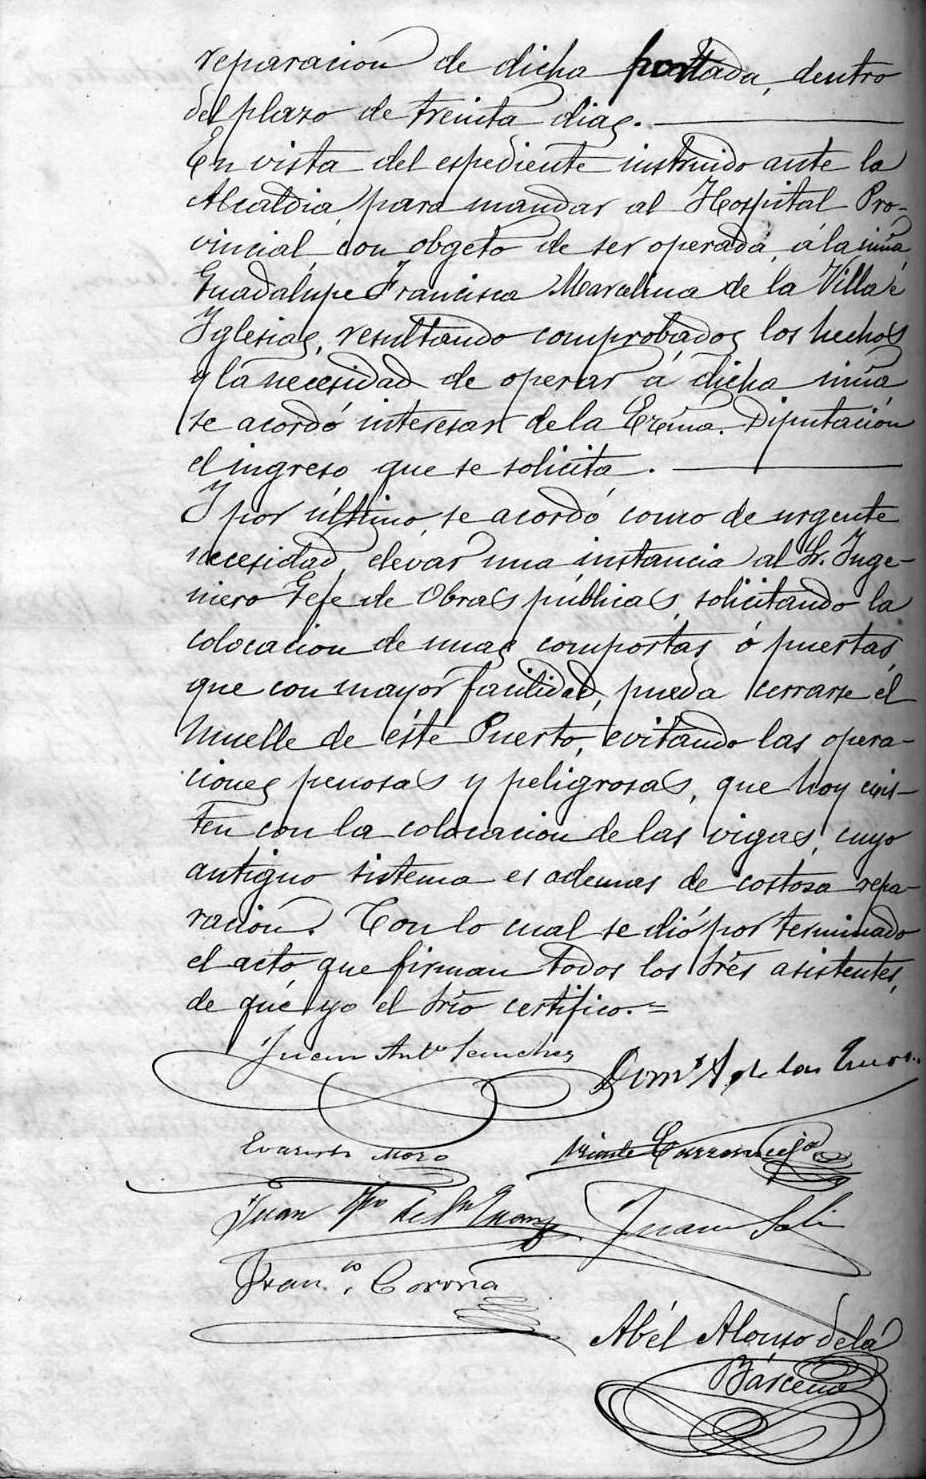 reparacion de dicha portada, dentro
del plazo de treinta dias.
En vista del espediente instruido ante la
Alcaldia para mandar al Hospital Pro-
vincial, con obgeto de ser operada, á la niña
Guadalupe Francisca Marcelina de la Villa é
Yglesias, resultando comprobados los hechos
y la necesidad de operar á dicha niña
se acordó interesar de la Exma. Diputación
el ingreso que se solicita.
Y por último se acordó como de urgente
necesidad, elevar una instancia al Sr. Inge-
niero Gefe de Obras públicas, solicitando la
colocacion de unas compostas ó puertas,
que con mayor facilidad, pueda cerrarse el
Muelle de éste Puerto, evitando las opera-
ciones penosas y peligrosas, que hoy exis-
ten con la colocacion de las vigas, cuyo
antiguo sistema es ademas de costosa repa-
ración. Con lo cual se dió por terminado
el acto que firman todos los Sres asistentes,
de qué yo el Srio certifico.=
Juan Ant.º Sanchez
Dom.º A. de los
Evaristo Mozo
Vicente Carrancejo
Juan de
Juan Soli
Fran.co Corona
Abél Alonso de la
Bárcena